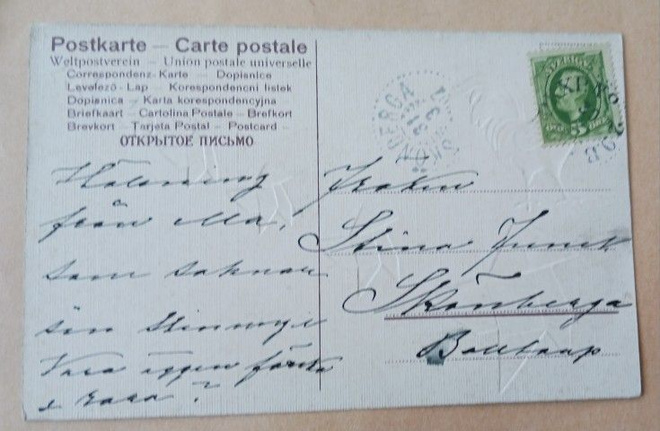 Postkarte – Carte postale
Weltpostverein – Union postale universelle
Correspondenz-Karte – Dopisnice
Levelező-Lap – Korespondencni listek
Dopisnica – Karta korespondencyjna
Briefkaart – Cartolina Postale – Brefkort
Brevkort – Tarjeta Postal – Postcard –
ОТКРЫТОЕ ПИСЬМО
Hälsning
från Ma,
som saknar
sin
Vara äggen färska
& ?
Fröken
Stina
Skönberga
SKÖNBERGA
SVERIGE
5